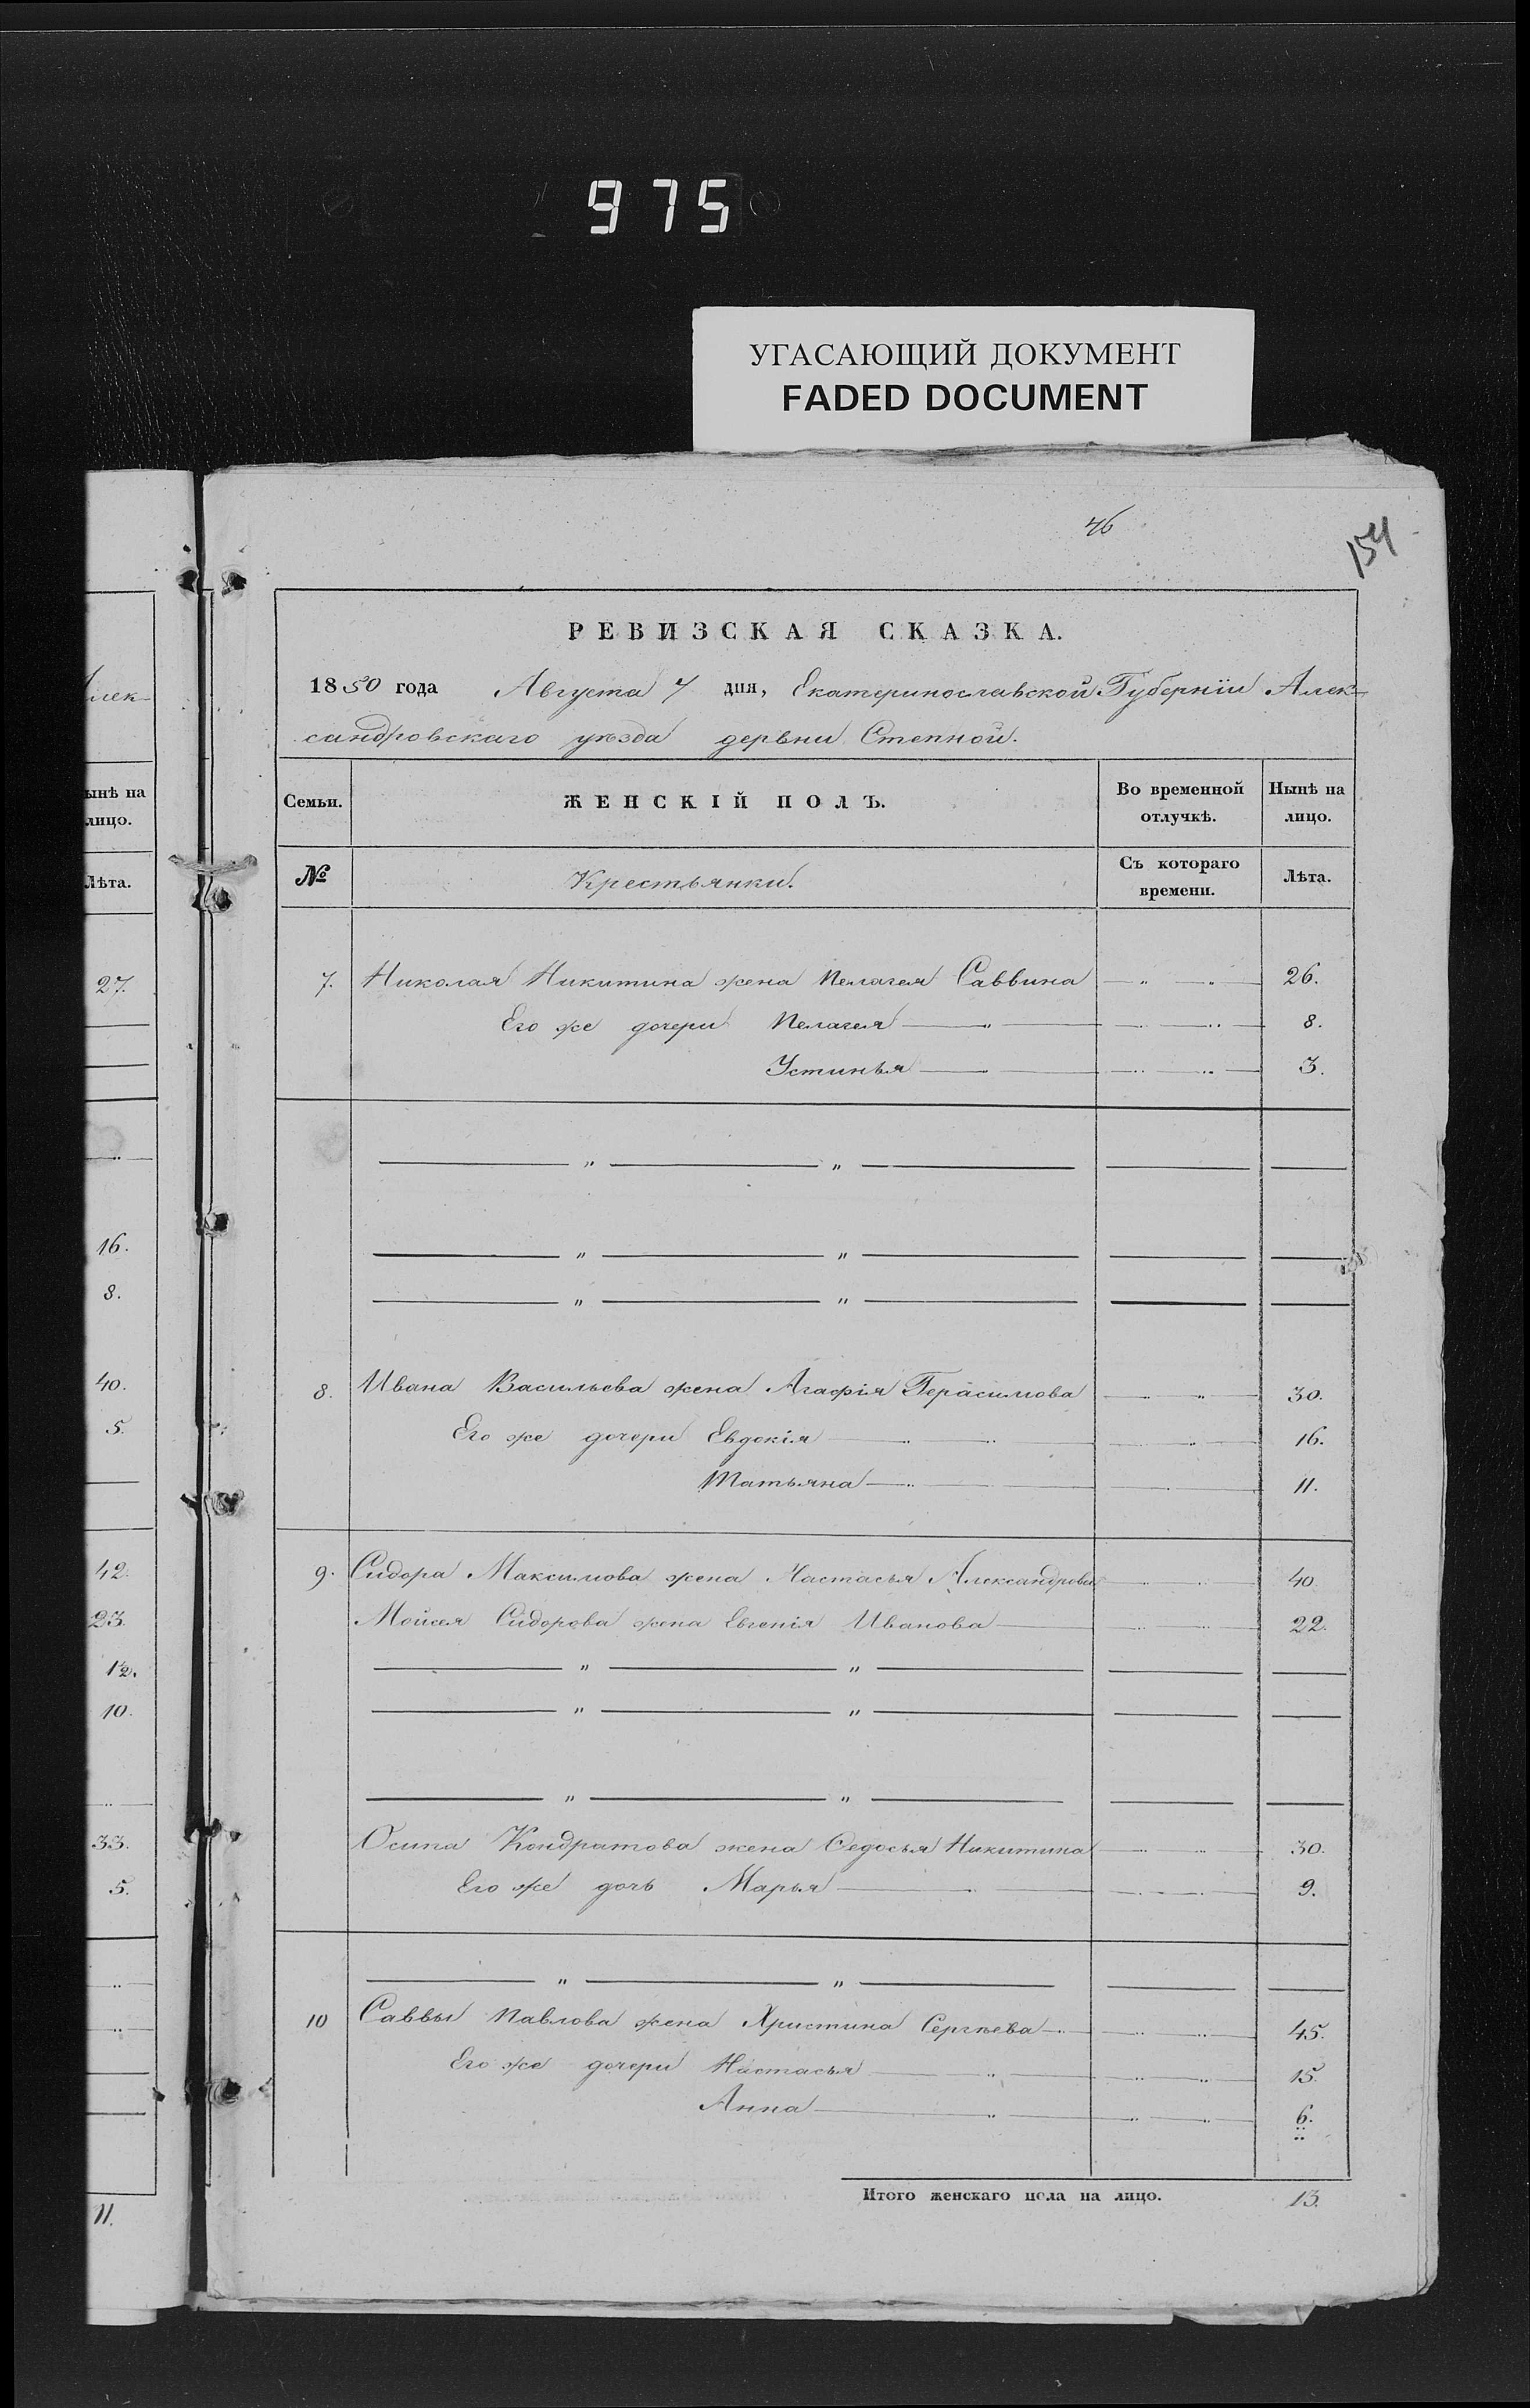 975
УГАСАЮЩИЙ ДОКУМЕНТ
FADED DOCUMENT
46
154
РЕВИЗСКАЯ СКАЗКА.
1850 года Августа 7 дня, Екатеринославской Губерніи Алек-
сандровскаго уѣзда дервни Степной.
Семьи. ЖЕНСКІЙ ПОЛЪ. Во временной отлучкѣ. Нынѣ на лицо.
№ Крестьянки. Съ котораго времени. Лѣта.
7. Николая Никитина жена Пелагея Саввина 26.
Его же дочери Пелагея 8.
Устинья 3.
8. Ивана Васильева жена Агафія Герасимова 30.
Его же дочери Евдокія 16.
Татьяна 11.
9. Сидора Максимова жена Настасья Александрова 40.
Мойсея Сидорова жена Евгенія Иванова 22.
Осипа Кондратова жена Ѳедосья Никитина 30.
Его же дочь Марья 9.
10 Саввы Павлова жена Христина Сергѣева 45.
Его же дочери Настасья 15.
Анна 6.
Итого женскаго пола на лицо. 13.
лек-
ынѣ на
лицо.
Лѣта.
27.
16.
8.
40.
5.
42.
23.
12.
10.
33.
5.
11.